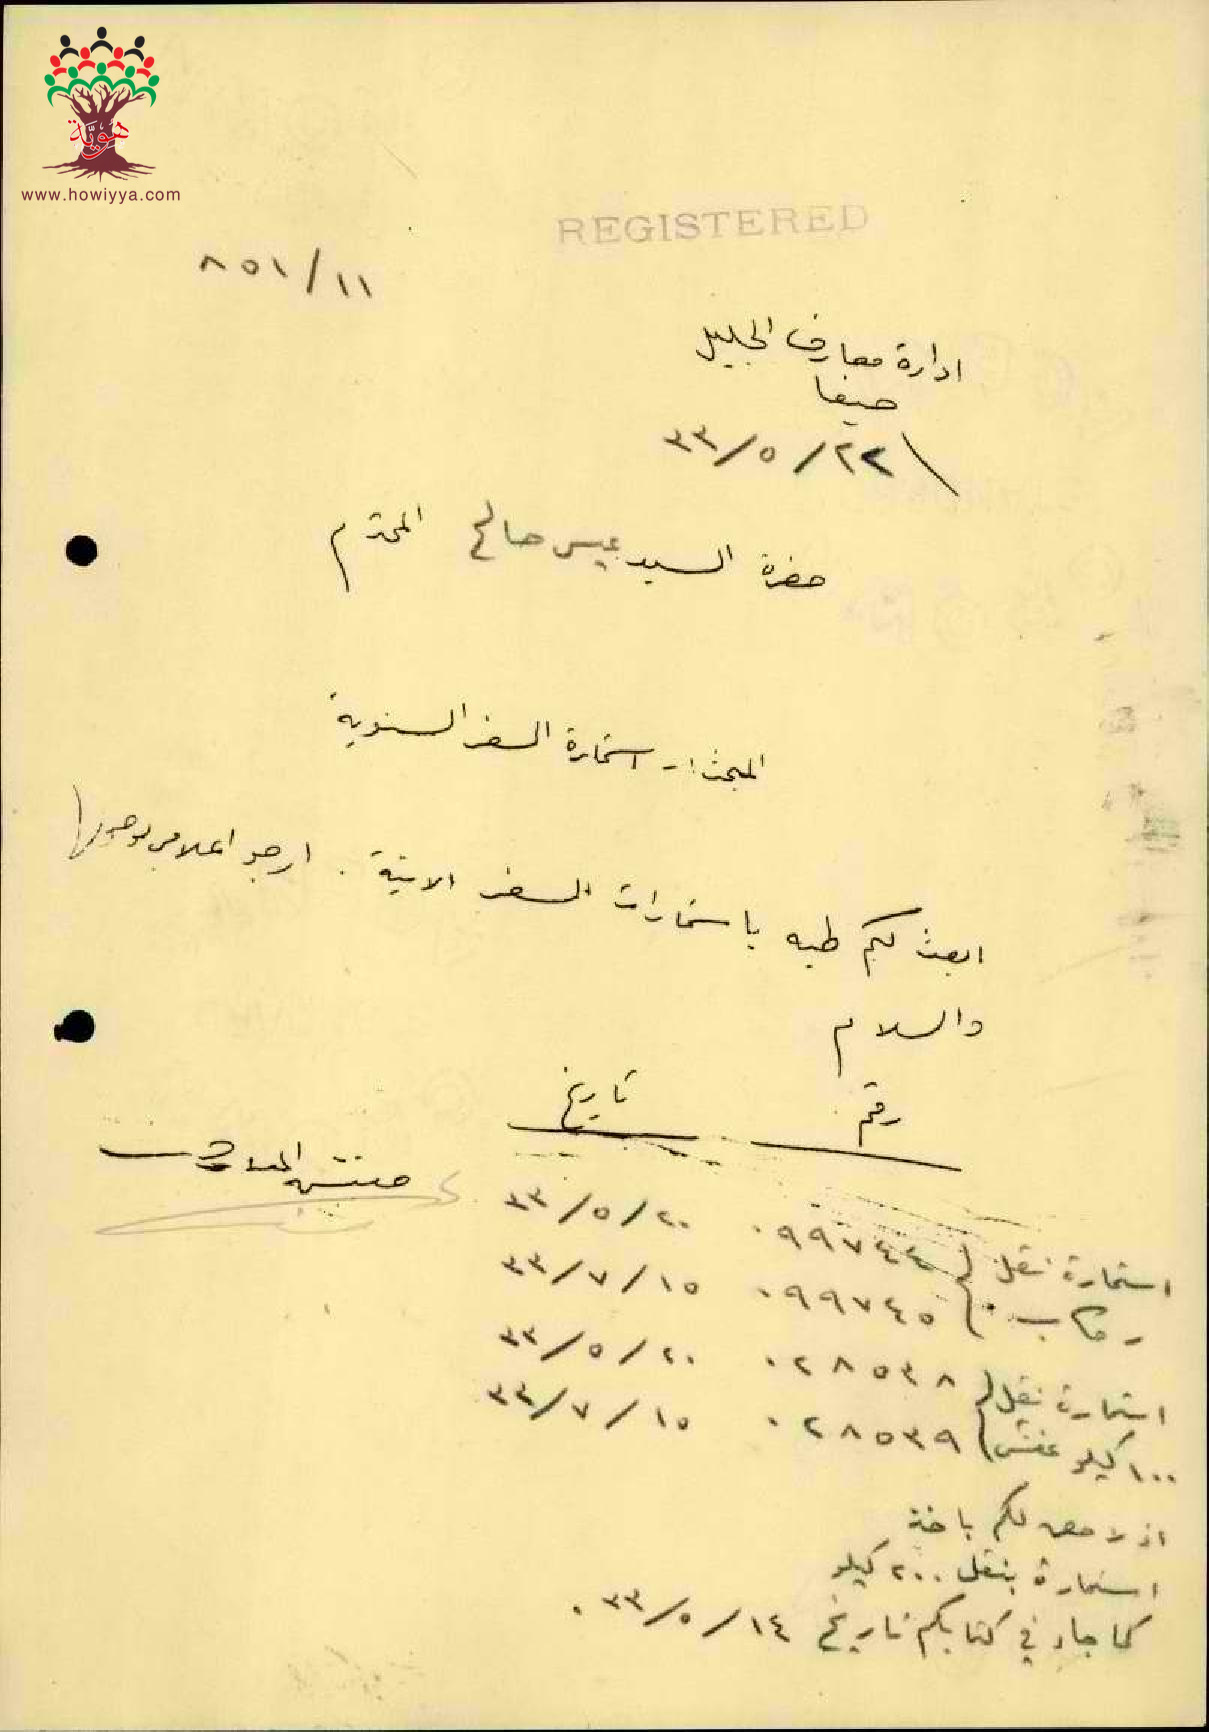 هوية
www.howiyya.com
REGISTERED
٨٥١/١١
ادارة معارف الجليل
حيفا
٣٣/٥/٢٢
حضرة السيد عيسى صالح المحترم
المبحث :- استمارة السفر السنوية
ابعث لكم طيه باستمارات السفر الاتية . ارجو اعلامي بوصولها
والسلام
رقم تاريخ
مفتش المعارف
استمارة نقل ٠٩٩٧٤٤ ٣٣/٥/٢٠
ركاب ٠٩٩٧٤٥ ٣٣/٧/١٥
استمارة نقل ٠٢٨٥٣٨ ٣٣/٥/٢٠
١٠٠ كيلو عفش ٠٢٨٥٣٩ ٣٣/٧/١٥
اذ لا حق لكم باخذ
استمارة بنقل ٢٠٠ كيلو
كما جاء في كتابكم تاريخ ٣٣/٥/١٤ .